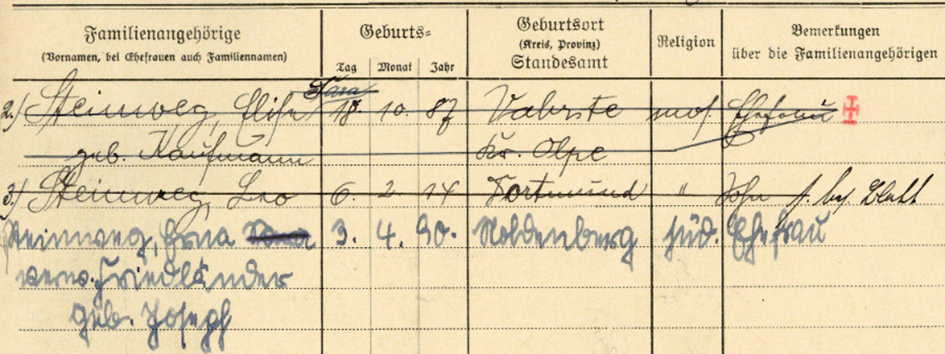 Familienangehörige
(Vornamen, bei Ehefrauen auch Familiennamen)
Geburts=
Tag Monat Jahr
Geburtsort
(Kreis, Provinz)
Standesamt
Religion
Bemerkungen
über die Familienangehörigen
Sara
2.) Steinweg, Elise 18. 10. 87 mos. Ehefrau
geb. Kaufmann Kr. Olpe
3.) Steinweg, Leo 6. 2. 14 Dortmund " Sohn s. bes. Blatt
Steinweg, Erna Sara 3. 4. 90. Moldenberg jüd. Ehefrau
verw. Friedländer
geb. Joseph